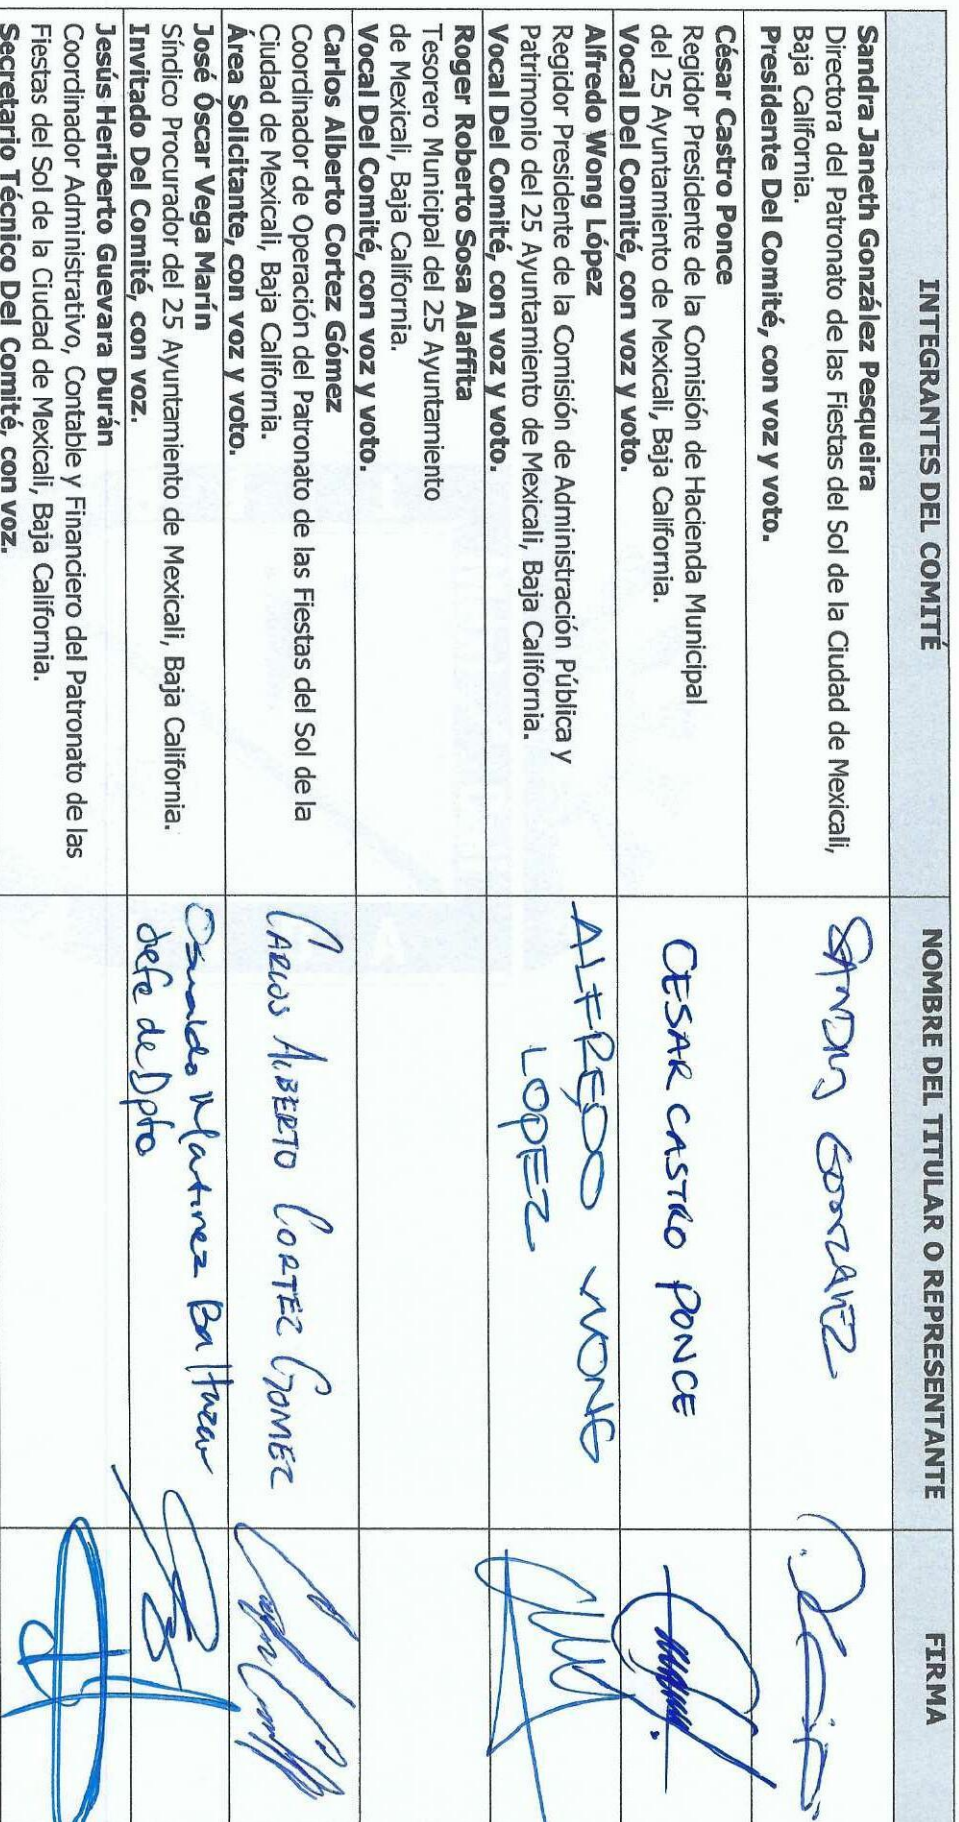 INTEGRANTES DEL COMITÉ
NOMBRE DEL TITULAR O REPRESENTANTE
FIRMA
Sandra Janeth González Pesqueira
Directora del Patronato de las Fiestas del Sol de la Ciudad de Mexicali,
Baja California.
Presidente Del Comité, con voz y voto.
SANDRA GONZALEZ
César Castro Ponce
Regidor Presidente de la Comisión de Hacienda Municipal
del 25 Ayuntamiento de Mexicali, Baja California.
Vocal Del Comité, con voz y voto.
CESAR CASTRO PONCE
Alfredo Wong López
Regidor Presidente de la Comisión de Administración Pública y
Patrimonio del 25 Ayuntamiento de Mexicali, Baja California.
Vocal Del Comité, con voz y voto.
ALFREDO WONG
LOPEZ
Roger Roberto Sosa Alaffita
Tesorero Municipal del 25 Ayuntamiento
de Mexicali, Baja California.
Vocal Del Comité, con voz y voto.
Carlos Alberto Cortez Gómez
Coordinador de Operación del Patronato de las Fiestas del Sol de la
Ciudad de Mexicali, Baja California.
Área Solicitante, con voz y voto.
CARLOS ALBERTO CORTEZ GOMEZ
José Óscar Vega Marín
Síndico Procurador del 25 Ayuntamiento de Mexicali, Baja California.
Invitado Del Comité, con voz.
Osvaldo Matinez Baltazar
Jefe de Dpto
Jesús Heriberto Guevara Durán
Coordinador Administrativo, Contable y Financiero del Patronato de las
Fiestas del Sol de la Ciudad de Mexicali, Baja California.
Secretario Técnico Del Comité, con voz.